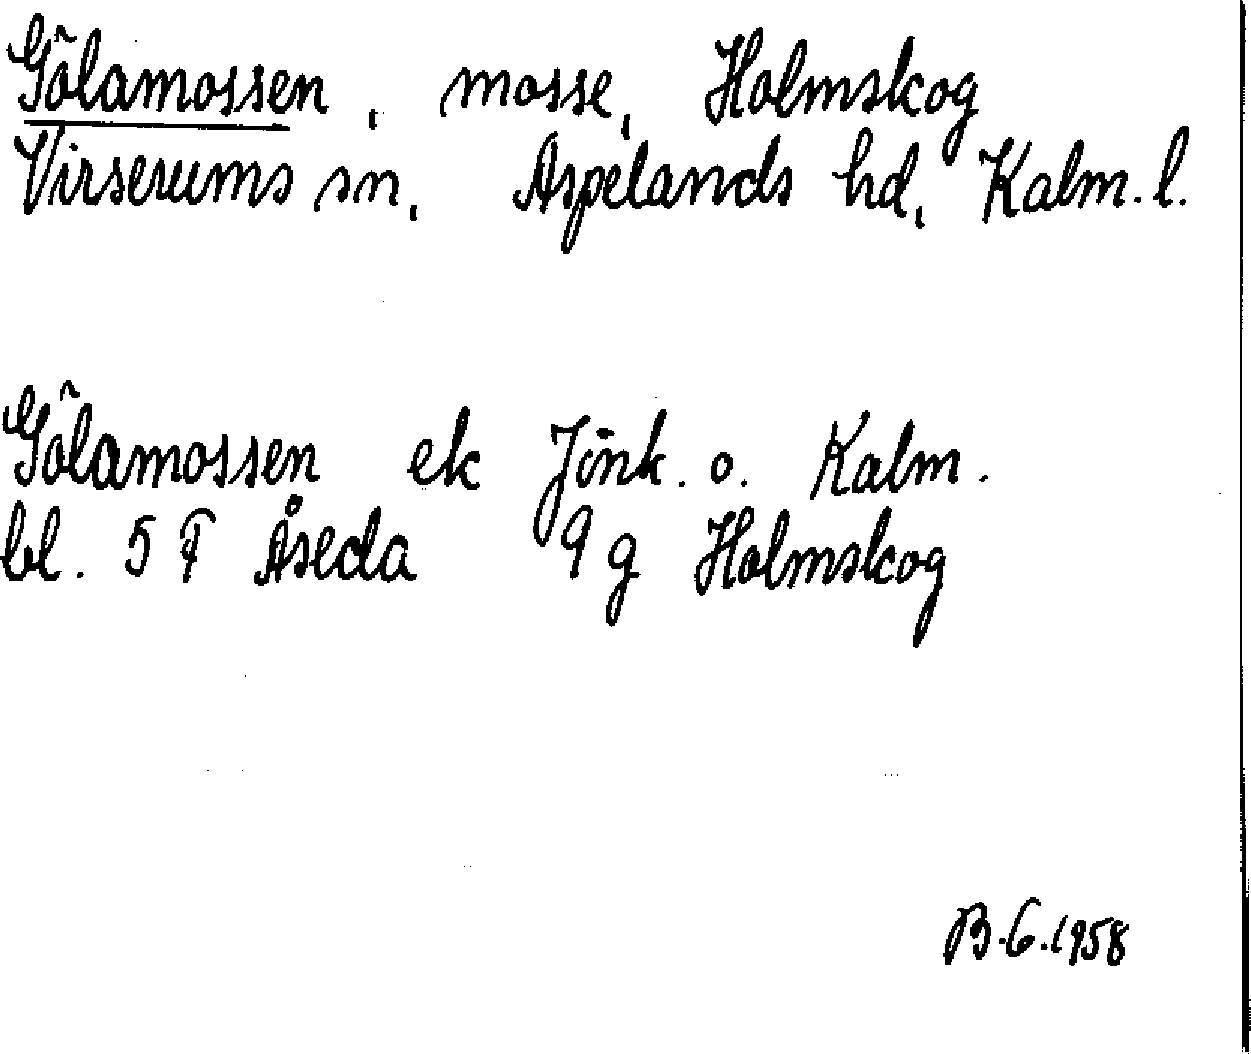 Gölamossen, mosse, Holmskog
Virserums sn, Aspelands hd, Kalm. l.
Gölamossen ek Jönk. o. Kalm.
bl. 5 F Åseda 9 g Holmskog
B.G.1958